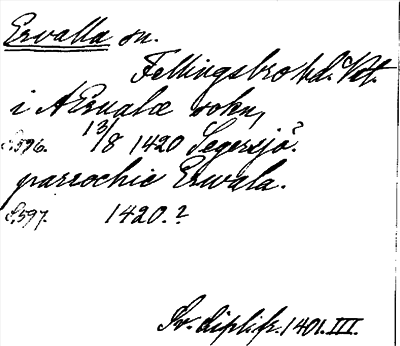 Ervalla sn.
Fellingsbro hd. Vstm.
i AErvalæ sokn,
S. 596. 13/8 1420 Segersjö?.
parrochie Erwala.
S. 597. 1420.?
Sv. dipl. fr. 1401. III.